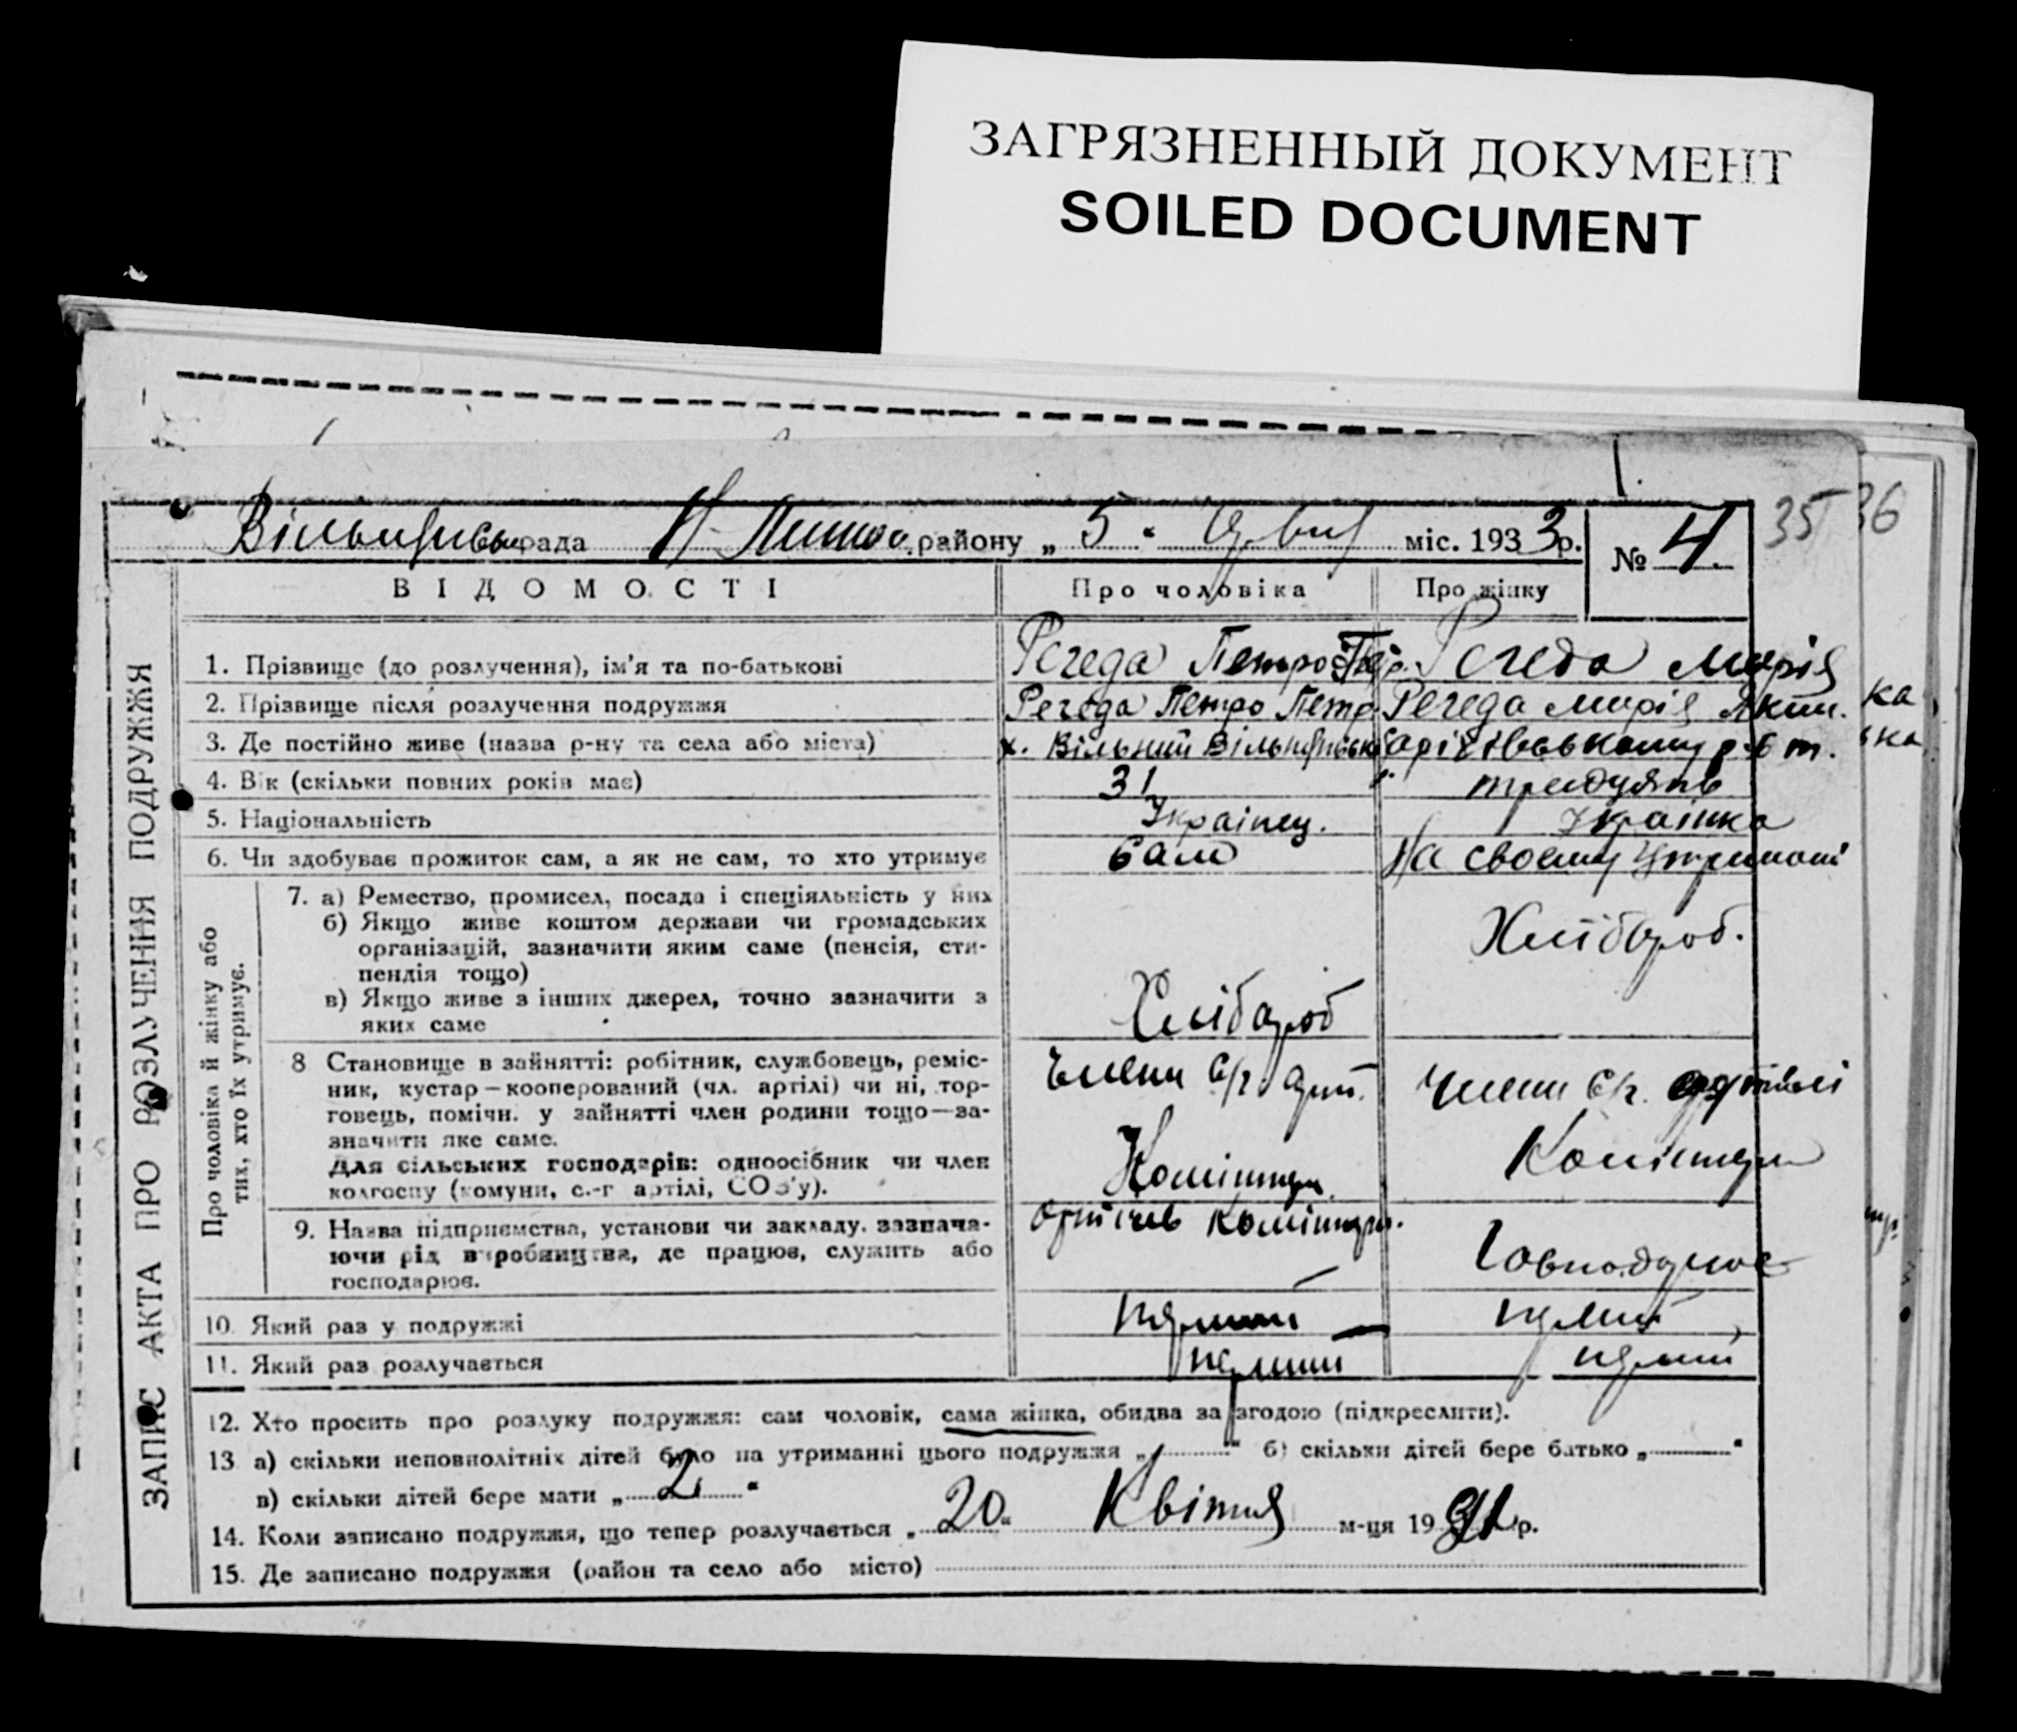 ЗАГРЯЗНЕННЫЙ ДОКУМЕНТ
SOILED DOCUMENT
35 36
рада району „ 5 “ міс. 1933 р. № 4.
ВІДОМОСТІ Про чоловіка Про жінку
ЗАПИС АКТА ПРО РОЗЛУЧЕННЯ ПОДРУЖЖЯ
1. Прізвище (до розлучення), ім'я та по-батькові Регеда Петро Петр. Регеда Марія
2. Прізвище після розлучення подружжя Регеда Петро Петр. Регеда Марія Яким.
3. Де постійно живе (назва р-ну та села або міста) х. Вільний
4. Вік (скільки повних років має) 31 тридцять
5. Національність Українец. Українка
6. Чи здобуває прожиток сам, а як не сам, то хто утримує Сам На своєму
Про чоловіка й жінку або
тих, хто їх утримує.
7. а) Ремество, промисел, посада і спеціяльність у них
б) Якщо живе коштом держави чи громадських
організацій, зазначити яким саме (пенсія, сти-
пендія тощо)
в) Якщо живе з інших джерел, точно зазначити з
яких саме
Хлібороб Хлібороб.
8 Становище в зайнятті: робітник, службовець, реміс-
ник, кустар — кооперований (чл. артілі) чи ні, тор-
говець, помічн. у зайнятті член родини тощо — за-
значити яке саме.
Для сільських господарів: одноосібник чи член
колгоспу (комуни, с.-г артілі, СОЗ'у).
Члени С/г. арт. Члени С/г. артілі
Комінтерн Комінтерн
9. Назва підприємства, установи чи закладу, зазнача-
ючи рід виробництва, де працює, служить або
господарює.
Комінтерн.
10. Який раз у подружжі перший перший
11. Який раз розлучається перший перший
12. Хто просить про розлуку подружжя: сам чоловік, сама жінка, обидва за згодою (підкреслити).
13 а) скільки неповнолітніх дітей було на утриманні цього подружжя „ “ б) скільки дітей бере батько „ “
в) скільки дітей бере мати „ 2 “
14. Коли записано подружжя, що тепер розлучається „ 20 “ Квітня м-ця 19 р.
15. Де записано подружжя (район та село або місто)